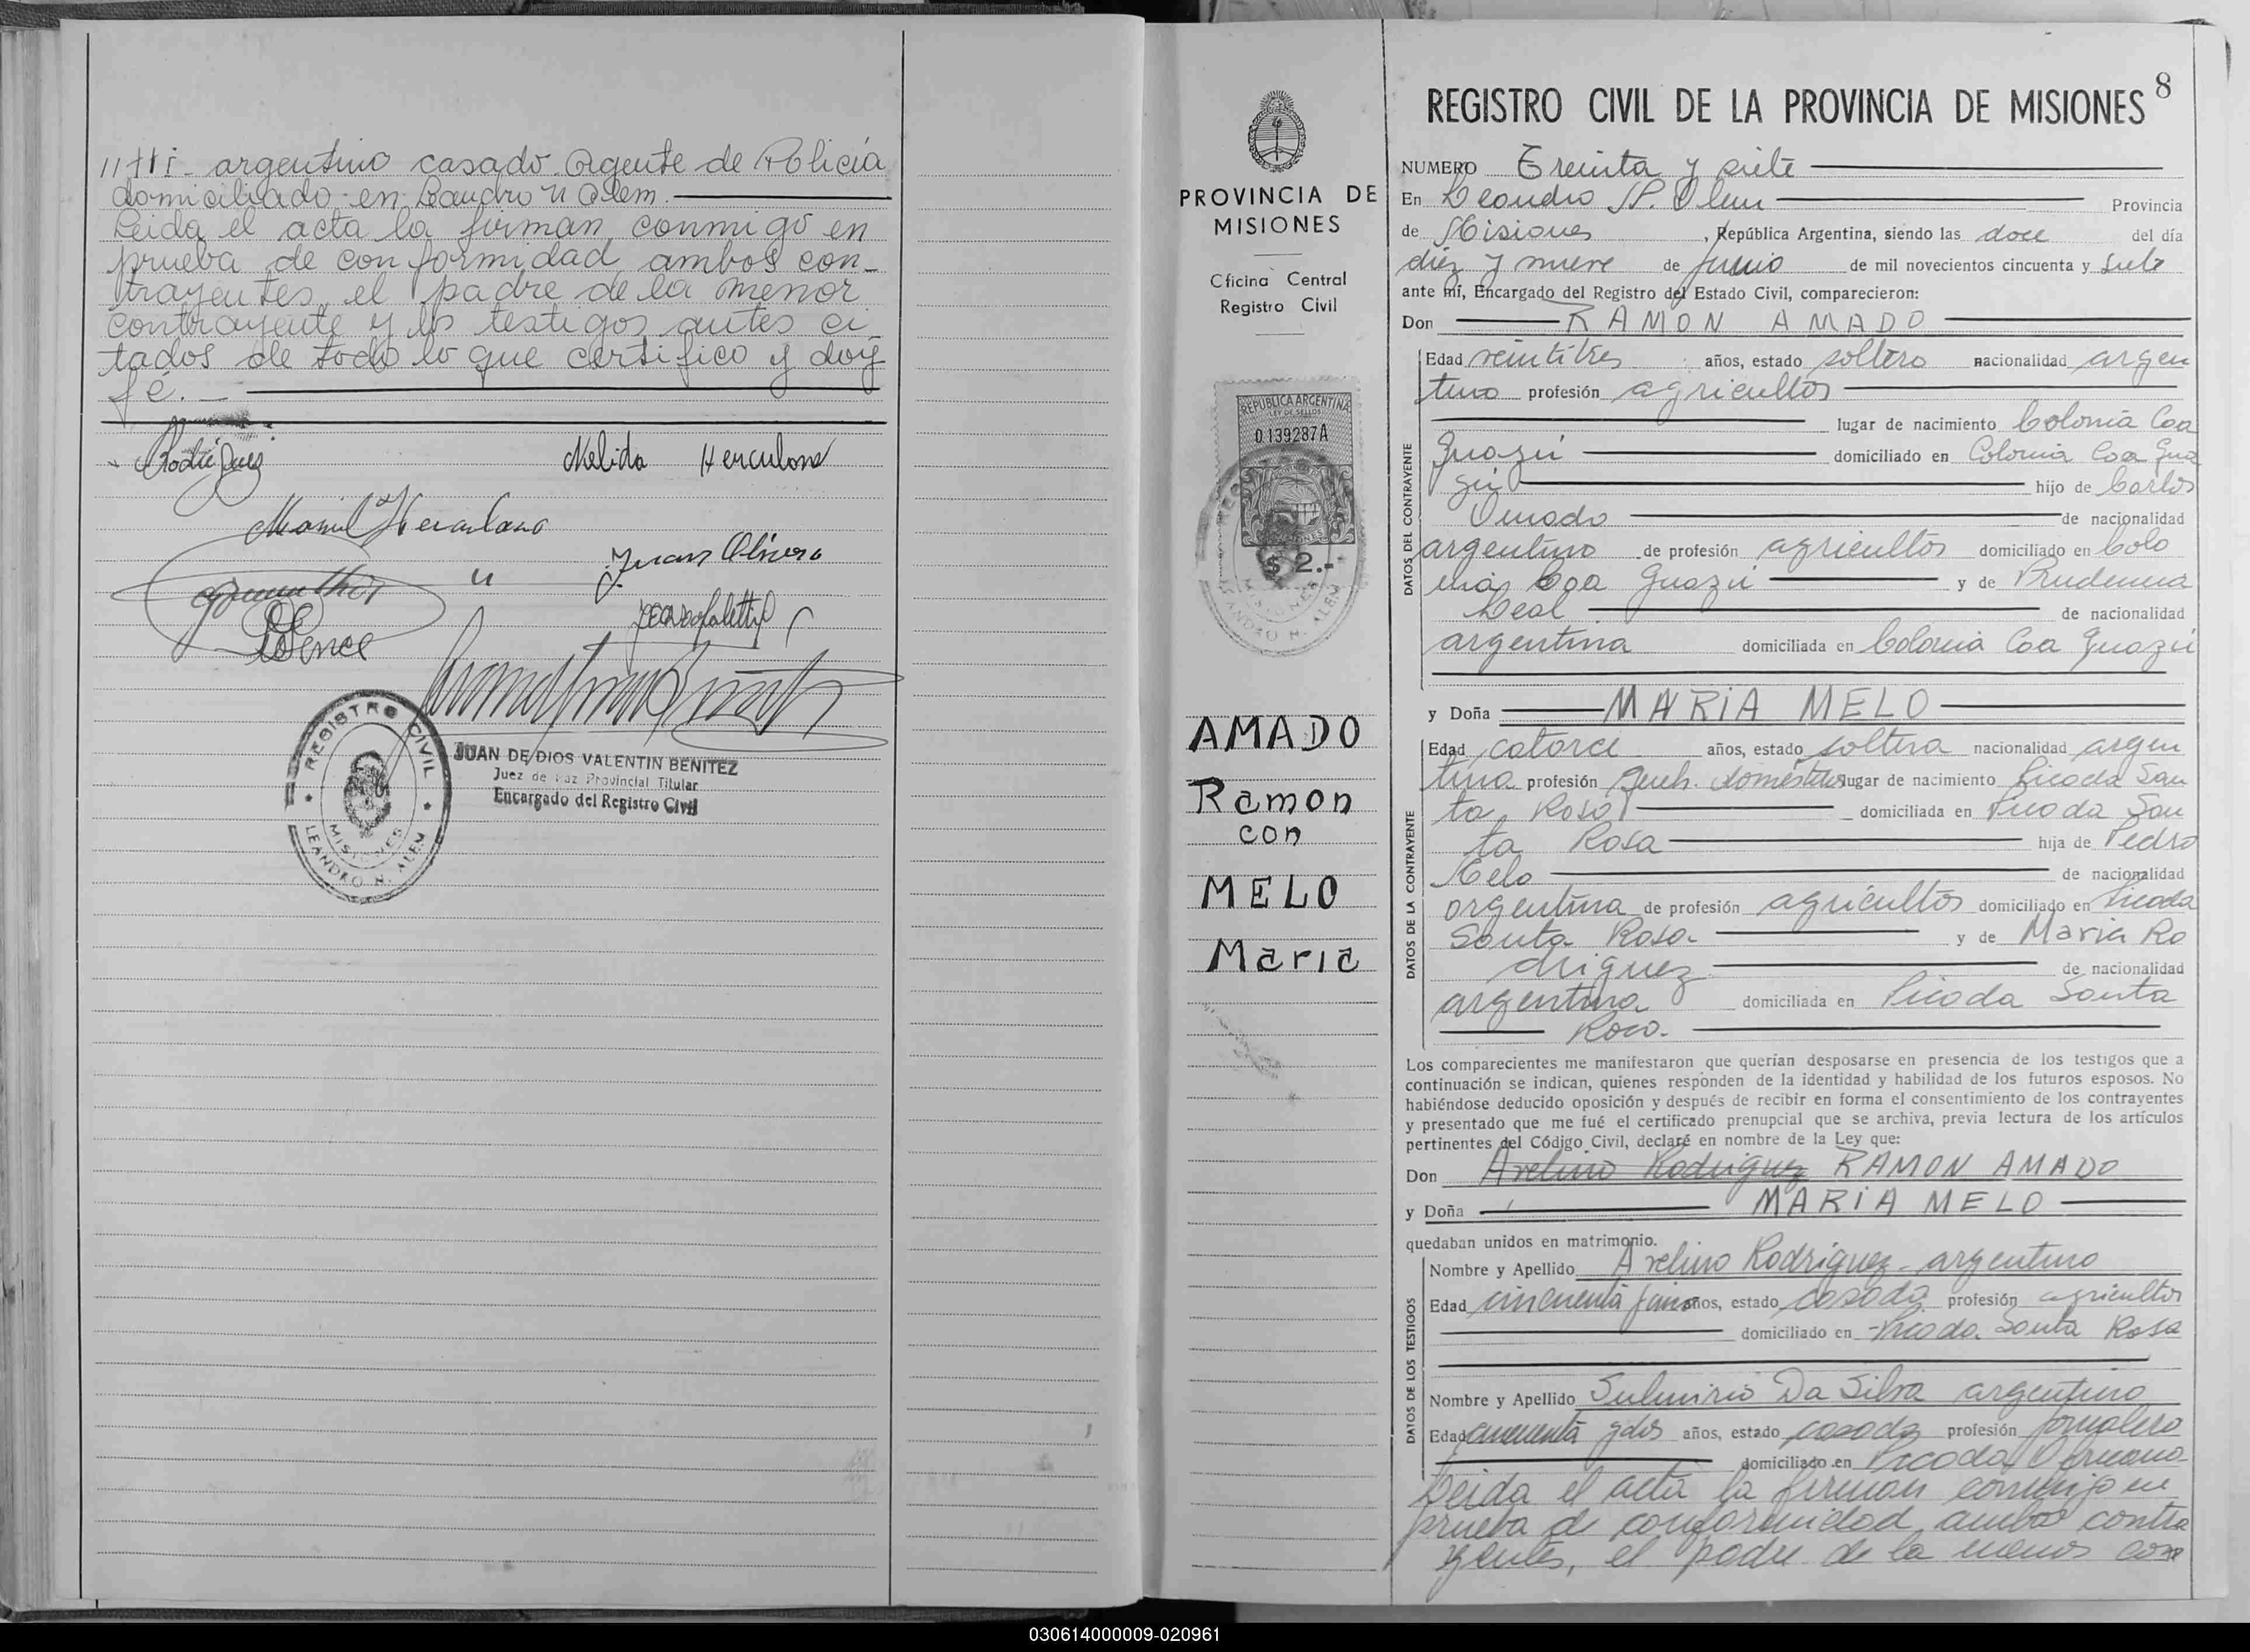 argentino casado. Agente de Policía
domiciliado en Leandro N Alem.
Leida el acta la firman conmigo en
prueba de conformidad ambos con-
trayentes, el padre de la menor
contrayente y los testigos antes ci
tados de todo lo que certifico y doy
fé. _
Rodriguez
Nelida Herculano
Manuel Herculano
Juan Olivera
REGISTRO CIVIL
MISIONES
LEANDRO N. ALEM
JUAN DE DIOS VALENTIN BENITEZ
Juez de Paz Provincial Titular
Encargado del Registro Civil
PROVINCIA DE
MISIONES
Oficina Central
Registro Civil
REPUBLICA ARGENTINA
LEY DE SELLOS
0.139287A
$ 2.-
MISIONES
LEANDRO N. ALEM
AMADO
Ramon
con
MELO
Maria
8
REGISTRO CIVIL DE LA PROVINCIA DE MISIONES
NUMERO Treinta y siete
En Leandro N. Alem Provincia
de Misiones, República Argentina, siendo las doce del día
diez y nueve de junio de mil novecientos cincuenta y siete
ante mí, Encargado del Registro del Estado Civil, comparecieron:
Don RAMON AMADO
DATOS DEL CONTRAYENTE
Edad veintitres años, estado soltero nacionalidad argen
tino profesión agricultor
lugar de nacimiento Colonia Caa
Guazú domiciliado en Colonia Caa Gua
zú hijo de Carlos
Amado de nacionalidad
argentino de profesión agricultor domiciliado en Colo
nia Caa Guazú y de Prudencia
Leal de nacionalidad
argentina domiciliada en Colonia Caa Guazú
y Doña MARIA MELO
DATOS DE LA CONTRAYENTE
Edad catorce años, estado soltera nacionalidad argen
tina profesión Queh. domésticos lugar de nacimiento Picada San
ta Rosa domiciliada en Picada San
ta Rosa hija de Pedro
Melo de nacionalidad
argentina de profesión agricultor domiciliado en Picada
Santa Rosa y de Maria Ro
driguez de nacionalidad
argentina domiciliada en Picada Santa
Rosa.
Los comparecientes me manifestaron que querían desposarse en presencia de los testigos que a
continuación se indican, quienes responden de la identidad y habilidad de los futuros esposos. No
habiéndose deducido oposición y después de recibir en forma el consentimiento de los contrayentes
y presentado que me fué el certificado prenupcial que se archiva, previa lectura de los artículos
pertinentes del Código Civil, declaré en nombre de la Ley que:
Don Avelino Rodriguez RAMON AMADO
y Doña MARIA MELO
quedaban unidos en matrimonio.
DATOS DE LOS TESTIGOS
Nombre y Apellido Avelino Rodriguez - argentino
Edad cincuenta años, estado casado profesión agricultor
domiciliado en Picada Santa Rosa
Nombre y Apellido Sulmirio Da Silva argentino
Edad cincuenta y dos años, estado casado profesión jornalero
domiciliado en Picada
Leida el acta la firman conmigo en
prueba de conformidad ambos contra
yentes, el padre de la menor con
030614000009-020961